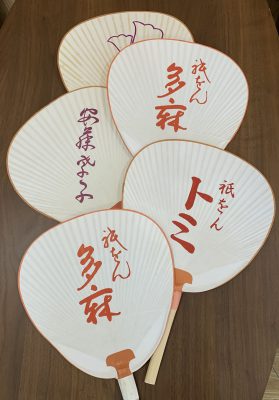 祇をん
多麻
安藤孝子
祇をん
トミ
祇をん
多麻